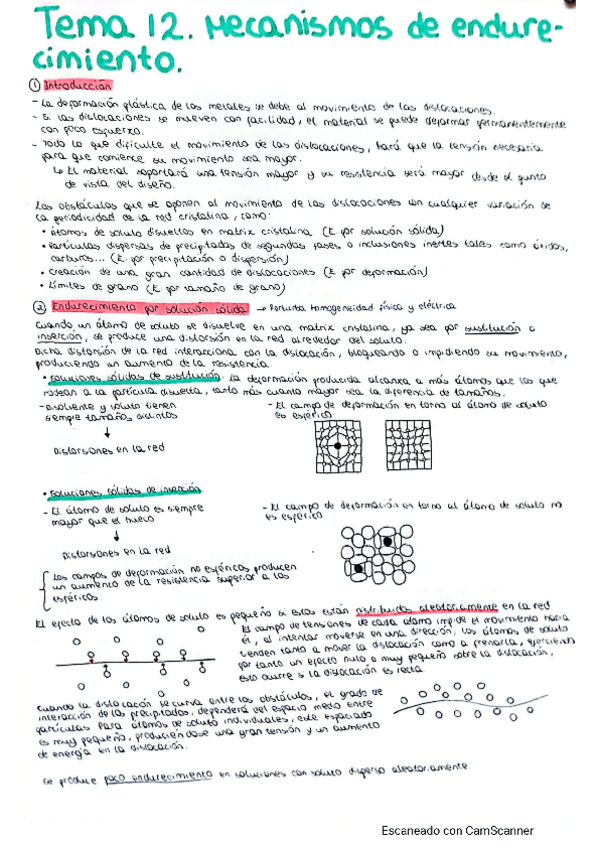 Tema 12. Mecanismos de endure-
cimiento.
① Introducción
- La deformación plástica de los metales se debe al movimiento de las dislocaciones.
- Si las dislocaciones se mueven con facilidad, el material se puede deformar permanentemente
con poco esfuerzo.
- Todo lo que dificulte el movimiento de las dislocaciones, hará que la tensión necesaria
para que comience su movimiento sea mayor.
↳ El material soportará una tensión mayor y su resistencia será mayor desde el punto
de vista del diseño.
Los obstáculos que se oponen al movimiento de las dislocaciones son cualquier variación de
la periodicidad de la red cristalina, como:
• Átomos de soluto disueltos en matriz cristalina (E por solución sólida)
• Partículas dispersas de precipitados de segundas fases o inclusiones inertes tales como óxidos,
carburos... (E por precipitación o dispersión)
• Creación de una gran cantidad de dislocaciones (E por deformación)
• Límites de grano (E por tamaño de grano)
② Endurecimiento por solución sólida → Perturba homogeneidad física y eléctrica
Cuando un átomo de soluto se disuelve en una matriz cristalina, ya sea por sustitución o
inserción, se produce una distorsión en la red alrededor del soluto.
Dicha distorsión de la red interacciona con la dislocación, bloqueando o impidiendo su movimiento,
produciendo un aumento de la resistencia.
• Soluciones sólidas de sustitución: La deformación producida alcanza a más átomos que los que
rodean a la partícula disuelta, tanto más cuanto mayor sea la diferencia de tamaños.
- Disolvente y soluto tienen
siempre tamaños distintos
↓
Distorsiones en la red
- El campo de deformación en torno al átomo de soluto
es esférico
• Soluciones sólidas de inserción
- El átomo de soluto es siempre
mayor que el hueco
↓
Distorsiones en la red
- El campo de deformación en torno al átomo de soluto no
es esférico
Los campos de deformación no esféricos producen
un aumento de la resistencia superior a los
esféricos
El efecto de los átomos de soluto es pequeño si estos están distribuidos aleatoriamente en la red
El campo de tensiones de cada átomo impide el movimiento hacia
él, al intentar moverse en una dirección, los átomos de soluto
tienden tanto a mover la dislocación como a frenarla, ejerciendo
por tanto un efecto nulo o muy pequeño sobre la dislocación,
esto ocurre si la dislocación es recta
Cuando la dislocación se curva entre los obstáculos, el grado de
interacción de los precipitados, dependerá del espacio medio entre
partículas. Para átomos de soluto individuales, este espaciado
es muy pequeño, produciéndose una gran tensión y un aumento
de energía en la dislocación.
Se produce poco endurecimiento en soluciones con soluto disperso aleatoriamente
Escaneado con CamScanner